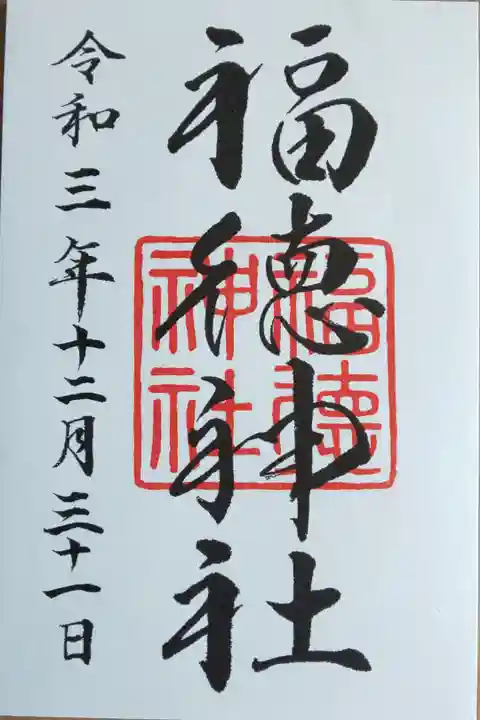 福徳神社
福徳神社
令和三年十二月三十一日